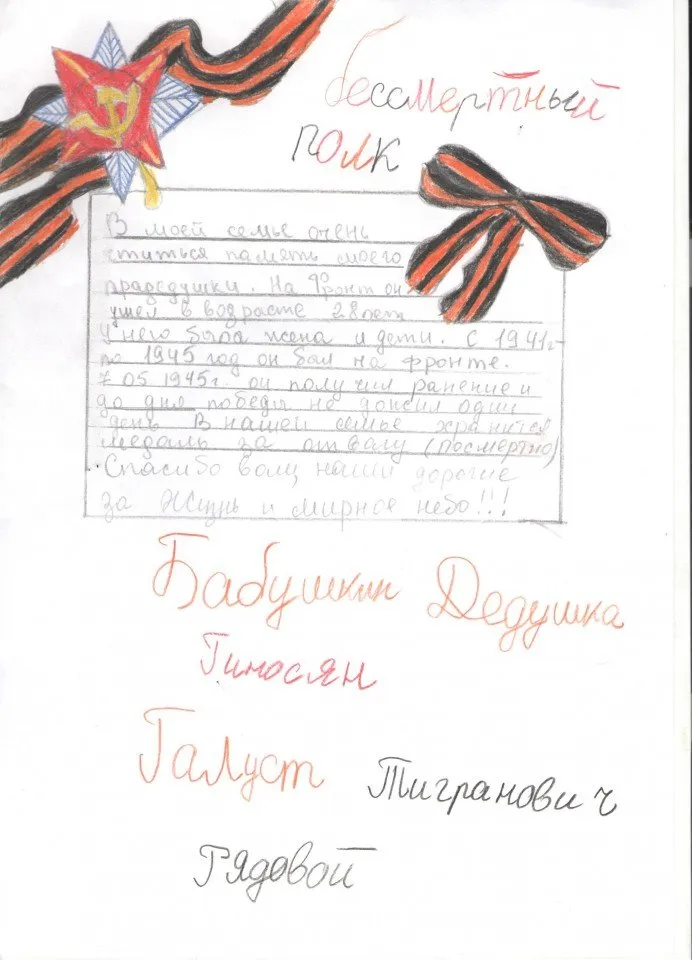 бессмертный
полк
В моей семье очень
чтиться память моего
прадедушки. На фронт он
ушел в возрасте 28 лет
У него была жена и дети. С 1941г
по 1945 год он был на фронте.
7 05 1945г. он получил ранение и
до дня победы не дожил один
день В нашей семье хранится
медаль за отвагу (посмертно)
Спасибо вам, наши дорогие
за жизнь и мирное небо!!!
Бабушкин Дедушка
Гиносян
Галуст Тигранович
Рядовой